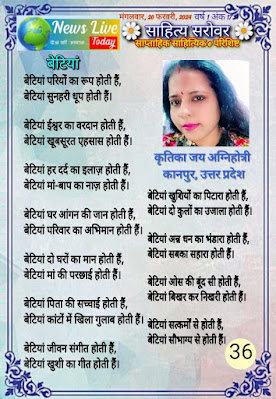 News Live
Today
मंगलवार, 20 फरवरी, 2024 वर्ष 1 अंक 1
साहित्य सरोवर
साप्ताहिक साहित्यिक ई परिशिष्ट
बेटियां
बेटियां परियों का रूप होती हैं,
बेटियां सुनहरी धूप होती हैं,
बेटियां ईश्वर का वरदान होती हैं,
बेटियां खूबसूरत एहसास होती हैं।
बेटियां हर दर्द का इलाज़ होती हैं,
बेटियां मां-बाप का नाज़ होती हैं।
बेटियां घर आंगन की जान होती हैं,
बेटियां परिवार का अभिमान होती हैं।
बेटियां दो घरों का मान होती हैं,
बेटियां मां की परछाई होती हैं।
बेटियां पिता की सच्चाई होती हैं,
बेटियां कांटों में खिला गुलाब होती हैं।
बेटियां जीवन संगीत होती हैं,
बेटियां खुशी का गीत होती हैं।
कृतिका जय अग्निहोत्री
कानपुर, उत्तर प्रदेश
बेटियां खुशियों का पिटारा होती हैं,
बेटियां दो कुलों का उजाला होती हैं।
बेटियां अन्न धन का भंडारा होती हैं,
बेटियां सबका सहारा होती हैं।
बेटियां ओस की बूंद सी होती हैं,
बेटियां बिखर कर निखरी होती हैं।
बेटियां सत्कर्मों से होती हैं,
बेटियां सौभाग्य से होती हैं।
36